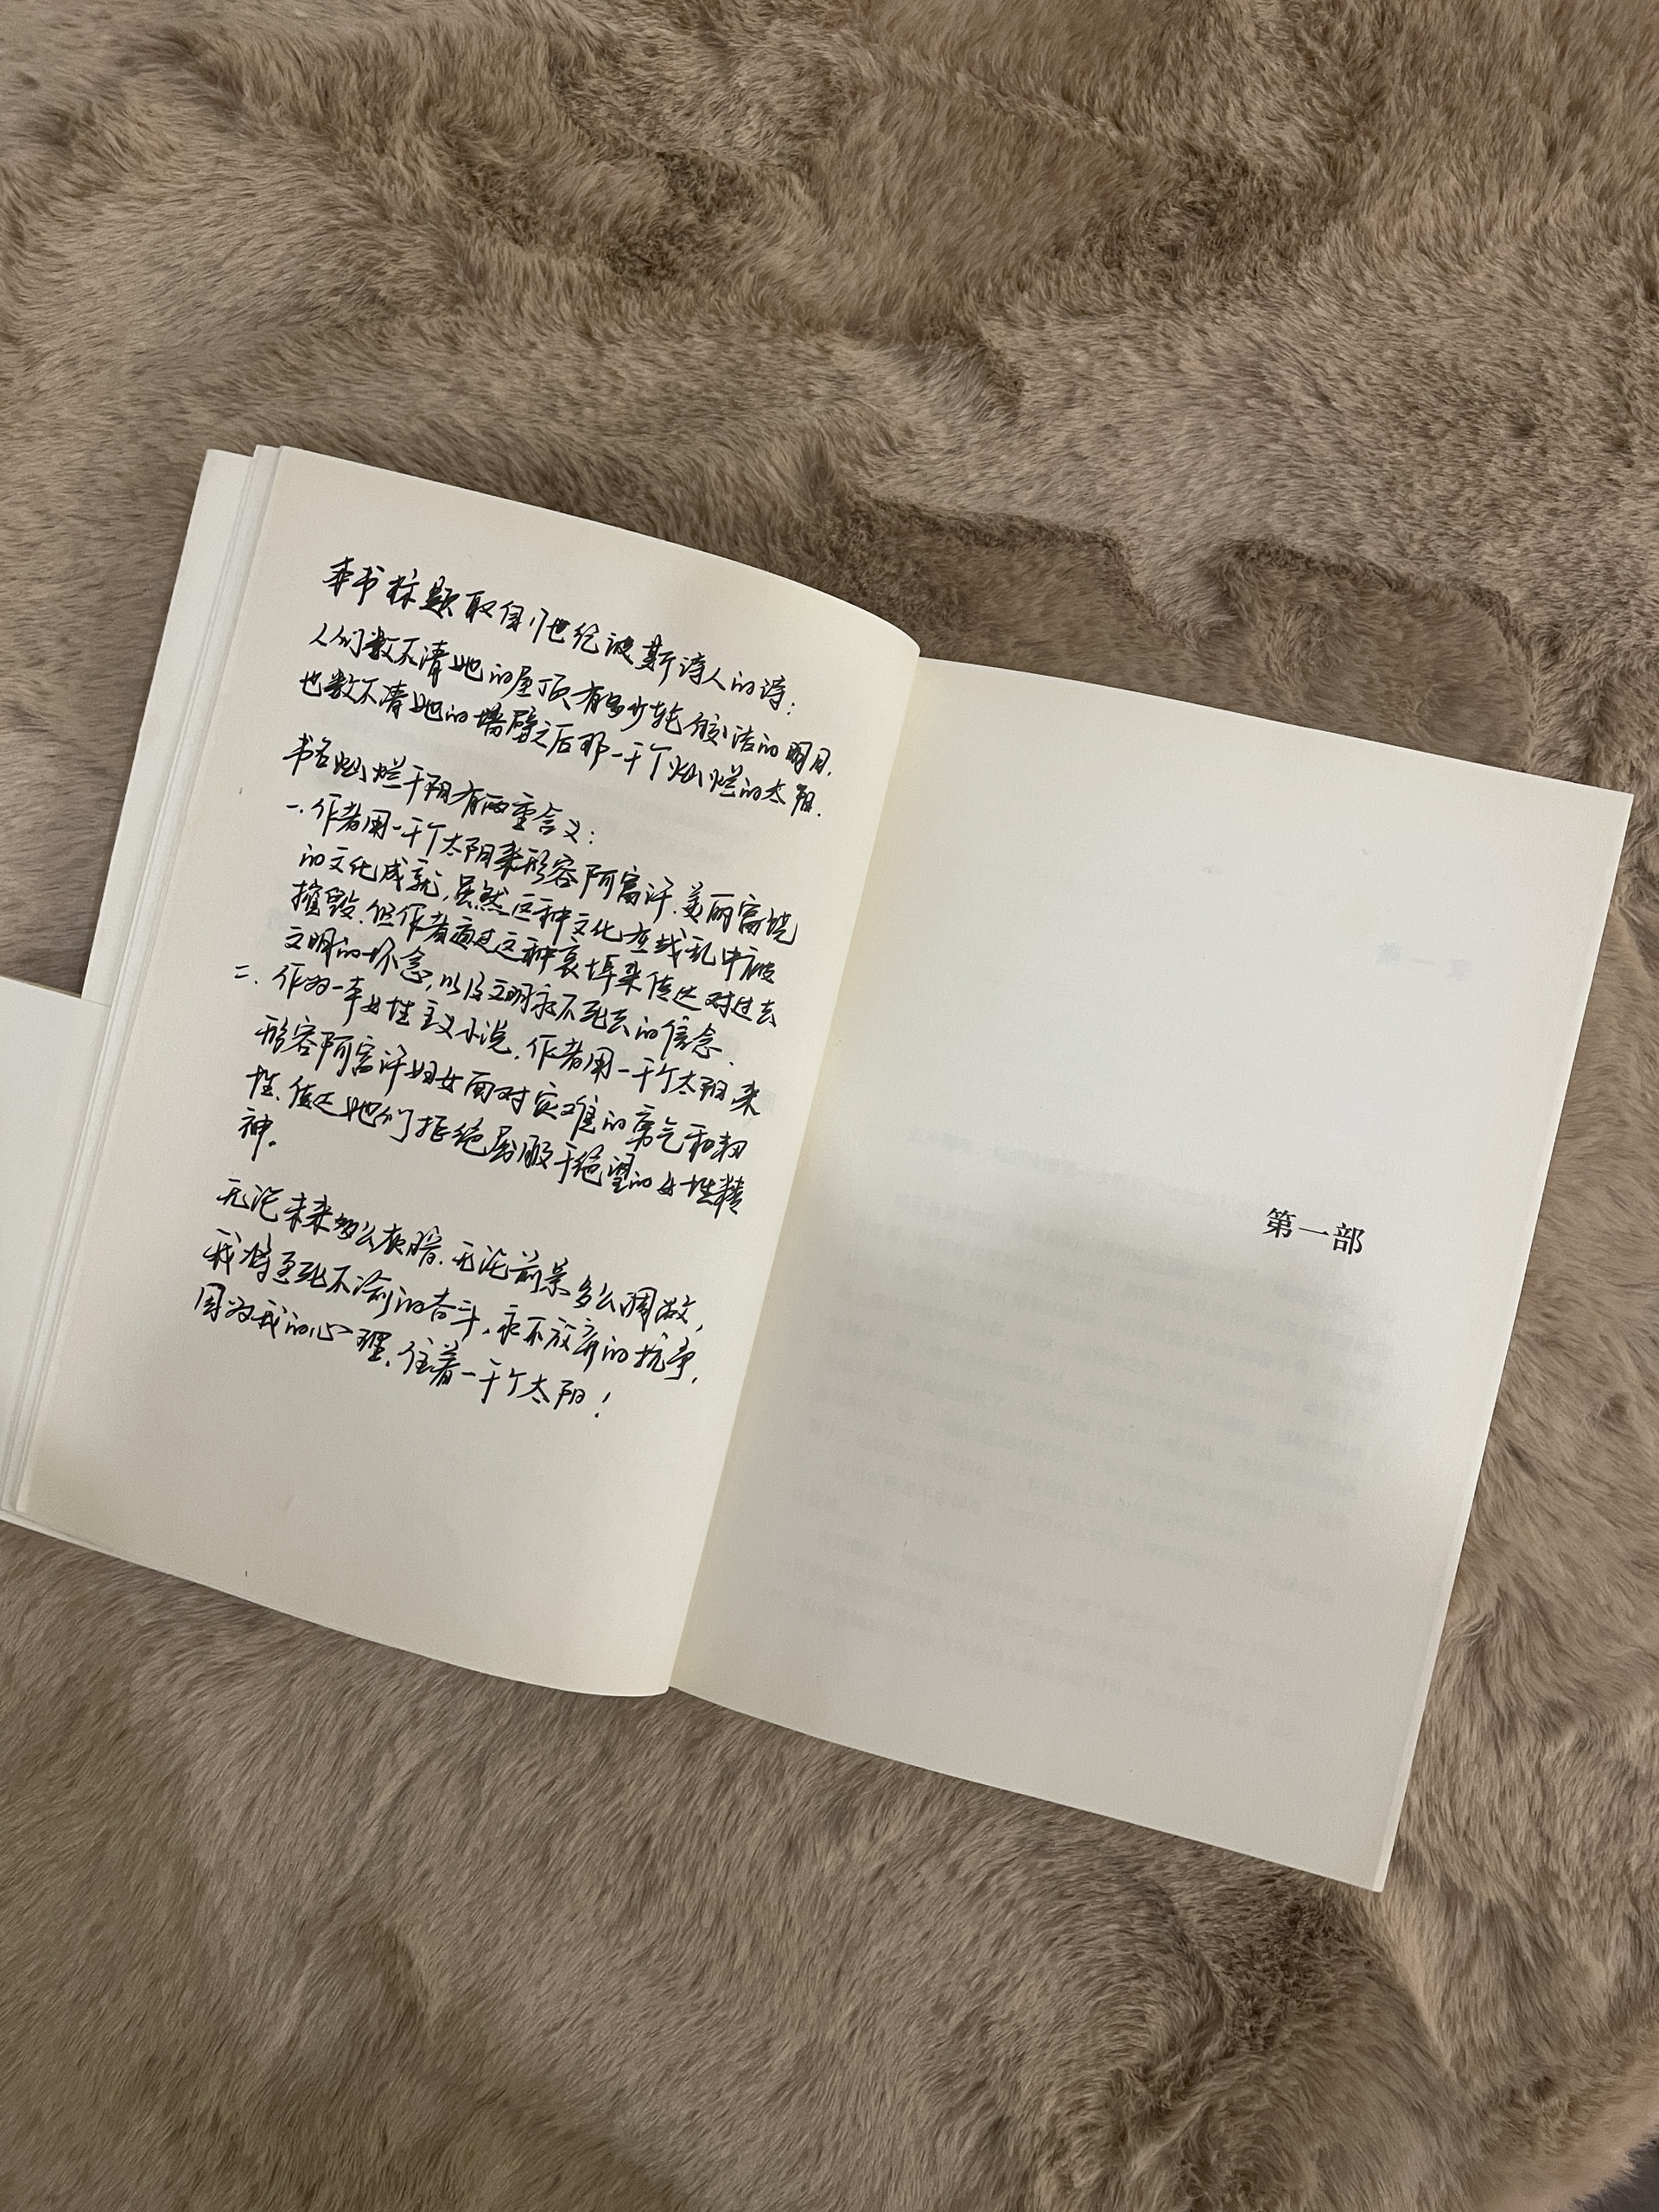 本书标题取自17世纪波斯诗人的诗:
人们数不清她的屋顶有多少轮皎洁的明月.
也数不清她的墙壁之后那一千个灿烂的太阳.
书名灿烂千阳有两重含义:
一.作者用一千个太阳来形容阿富汗.美丽富饶
的文化成就,虽然这种文化在战乱中被
摧毁.但作者通过这种哀悼来传达对过去
文明的怀念,以及文明永不死去的信念.
二.作为一本女性主义小说,作者用一千个太阳来
形容阿富汗妇女面对灾难的勇气和韧
性.传达她们拒绝屈服于绝望的女性精
神。
无论未来多么灰暗.无论前景多么凋敝,
我将至死不渝的奋斗,永不放弃的抗争,
因为我的心理,住着一千个太阳!
第一部